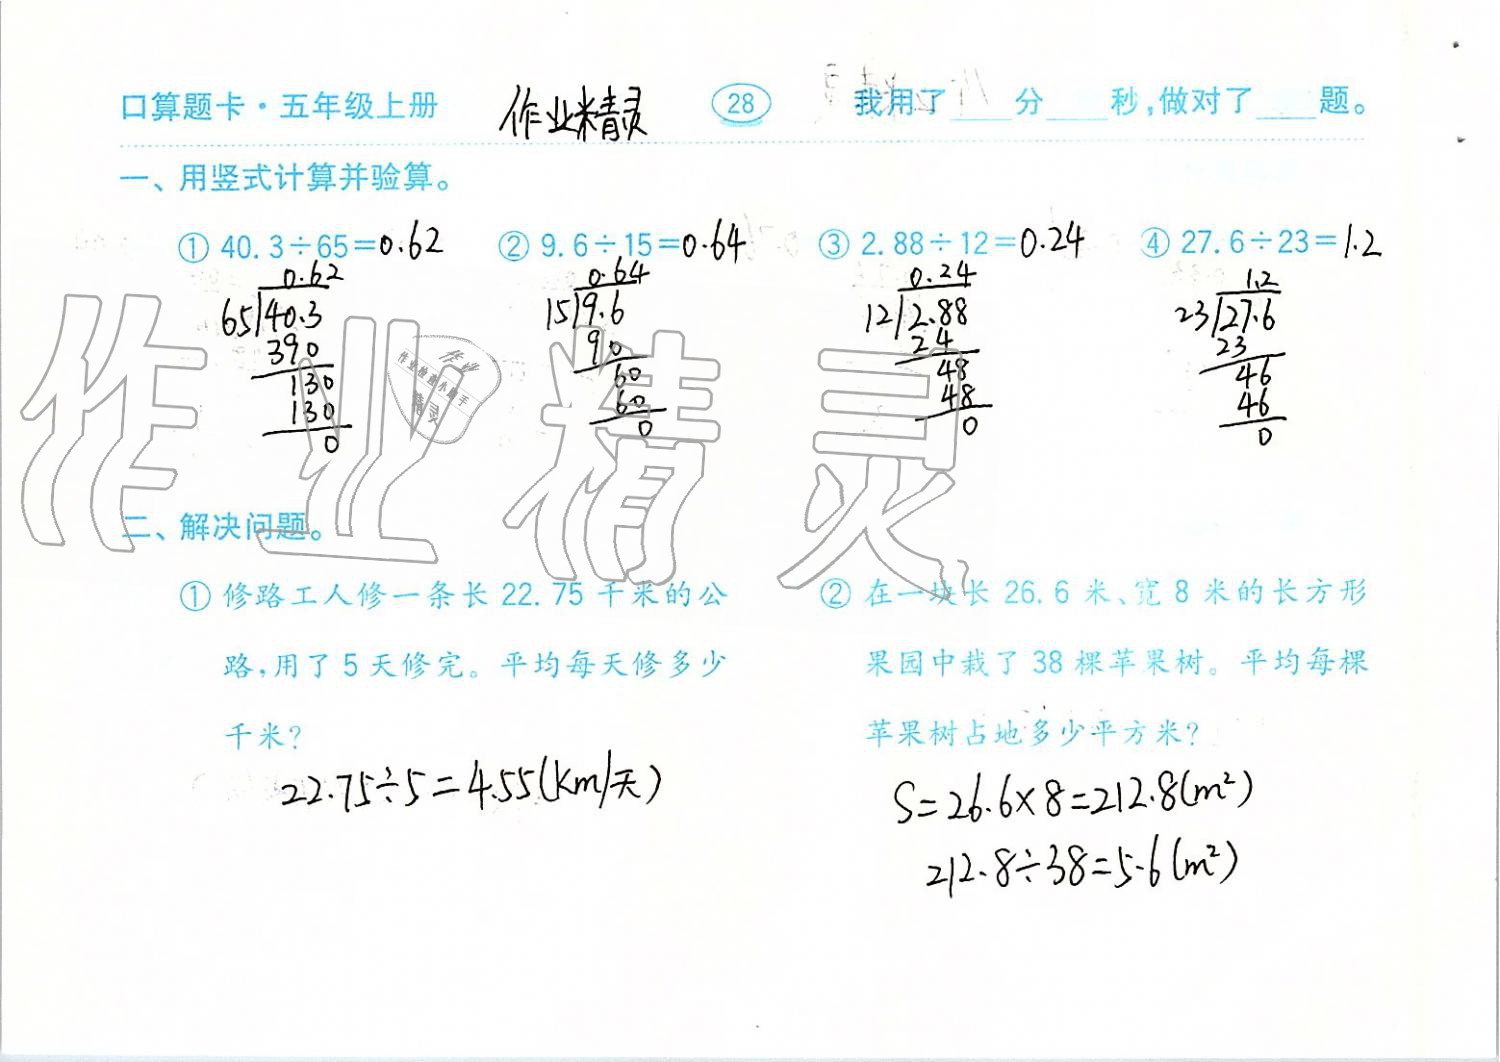 口算题卡·五年级上册 作业精灵 28 我用了____分____秒,做对了____题。
一、用竖式计算并验算。
① 40.3÷65=0.62 ② 9.6÷15=0.64 ③ 2.88÷12=0.24 ④ 27.6÷23=1.2
0.62 0.64 0.24 1.2
65 40.3 15 9.6 12 2.88 23 27.6
390 90 24 23
130 60 48 46
130 60 48 46
0 0 0 0
作业精灵
二、解决问题。
① 修路工人修一条长 22.75 千米的公
路,用了 5 天修完。平均每天修多少
千米?
22.75÷5=4.55(km/天)
② 在一块长 26.6 米、宽 8 米的长方形
果园中栽了 38 棵苹果树。平均每棵
苹果树占地多少平方米?
S=26.6×8=212.8(m²)
212.8÷38=5.6(m²)